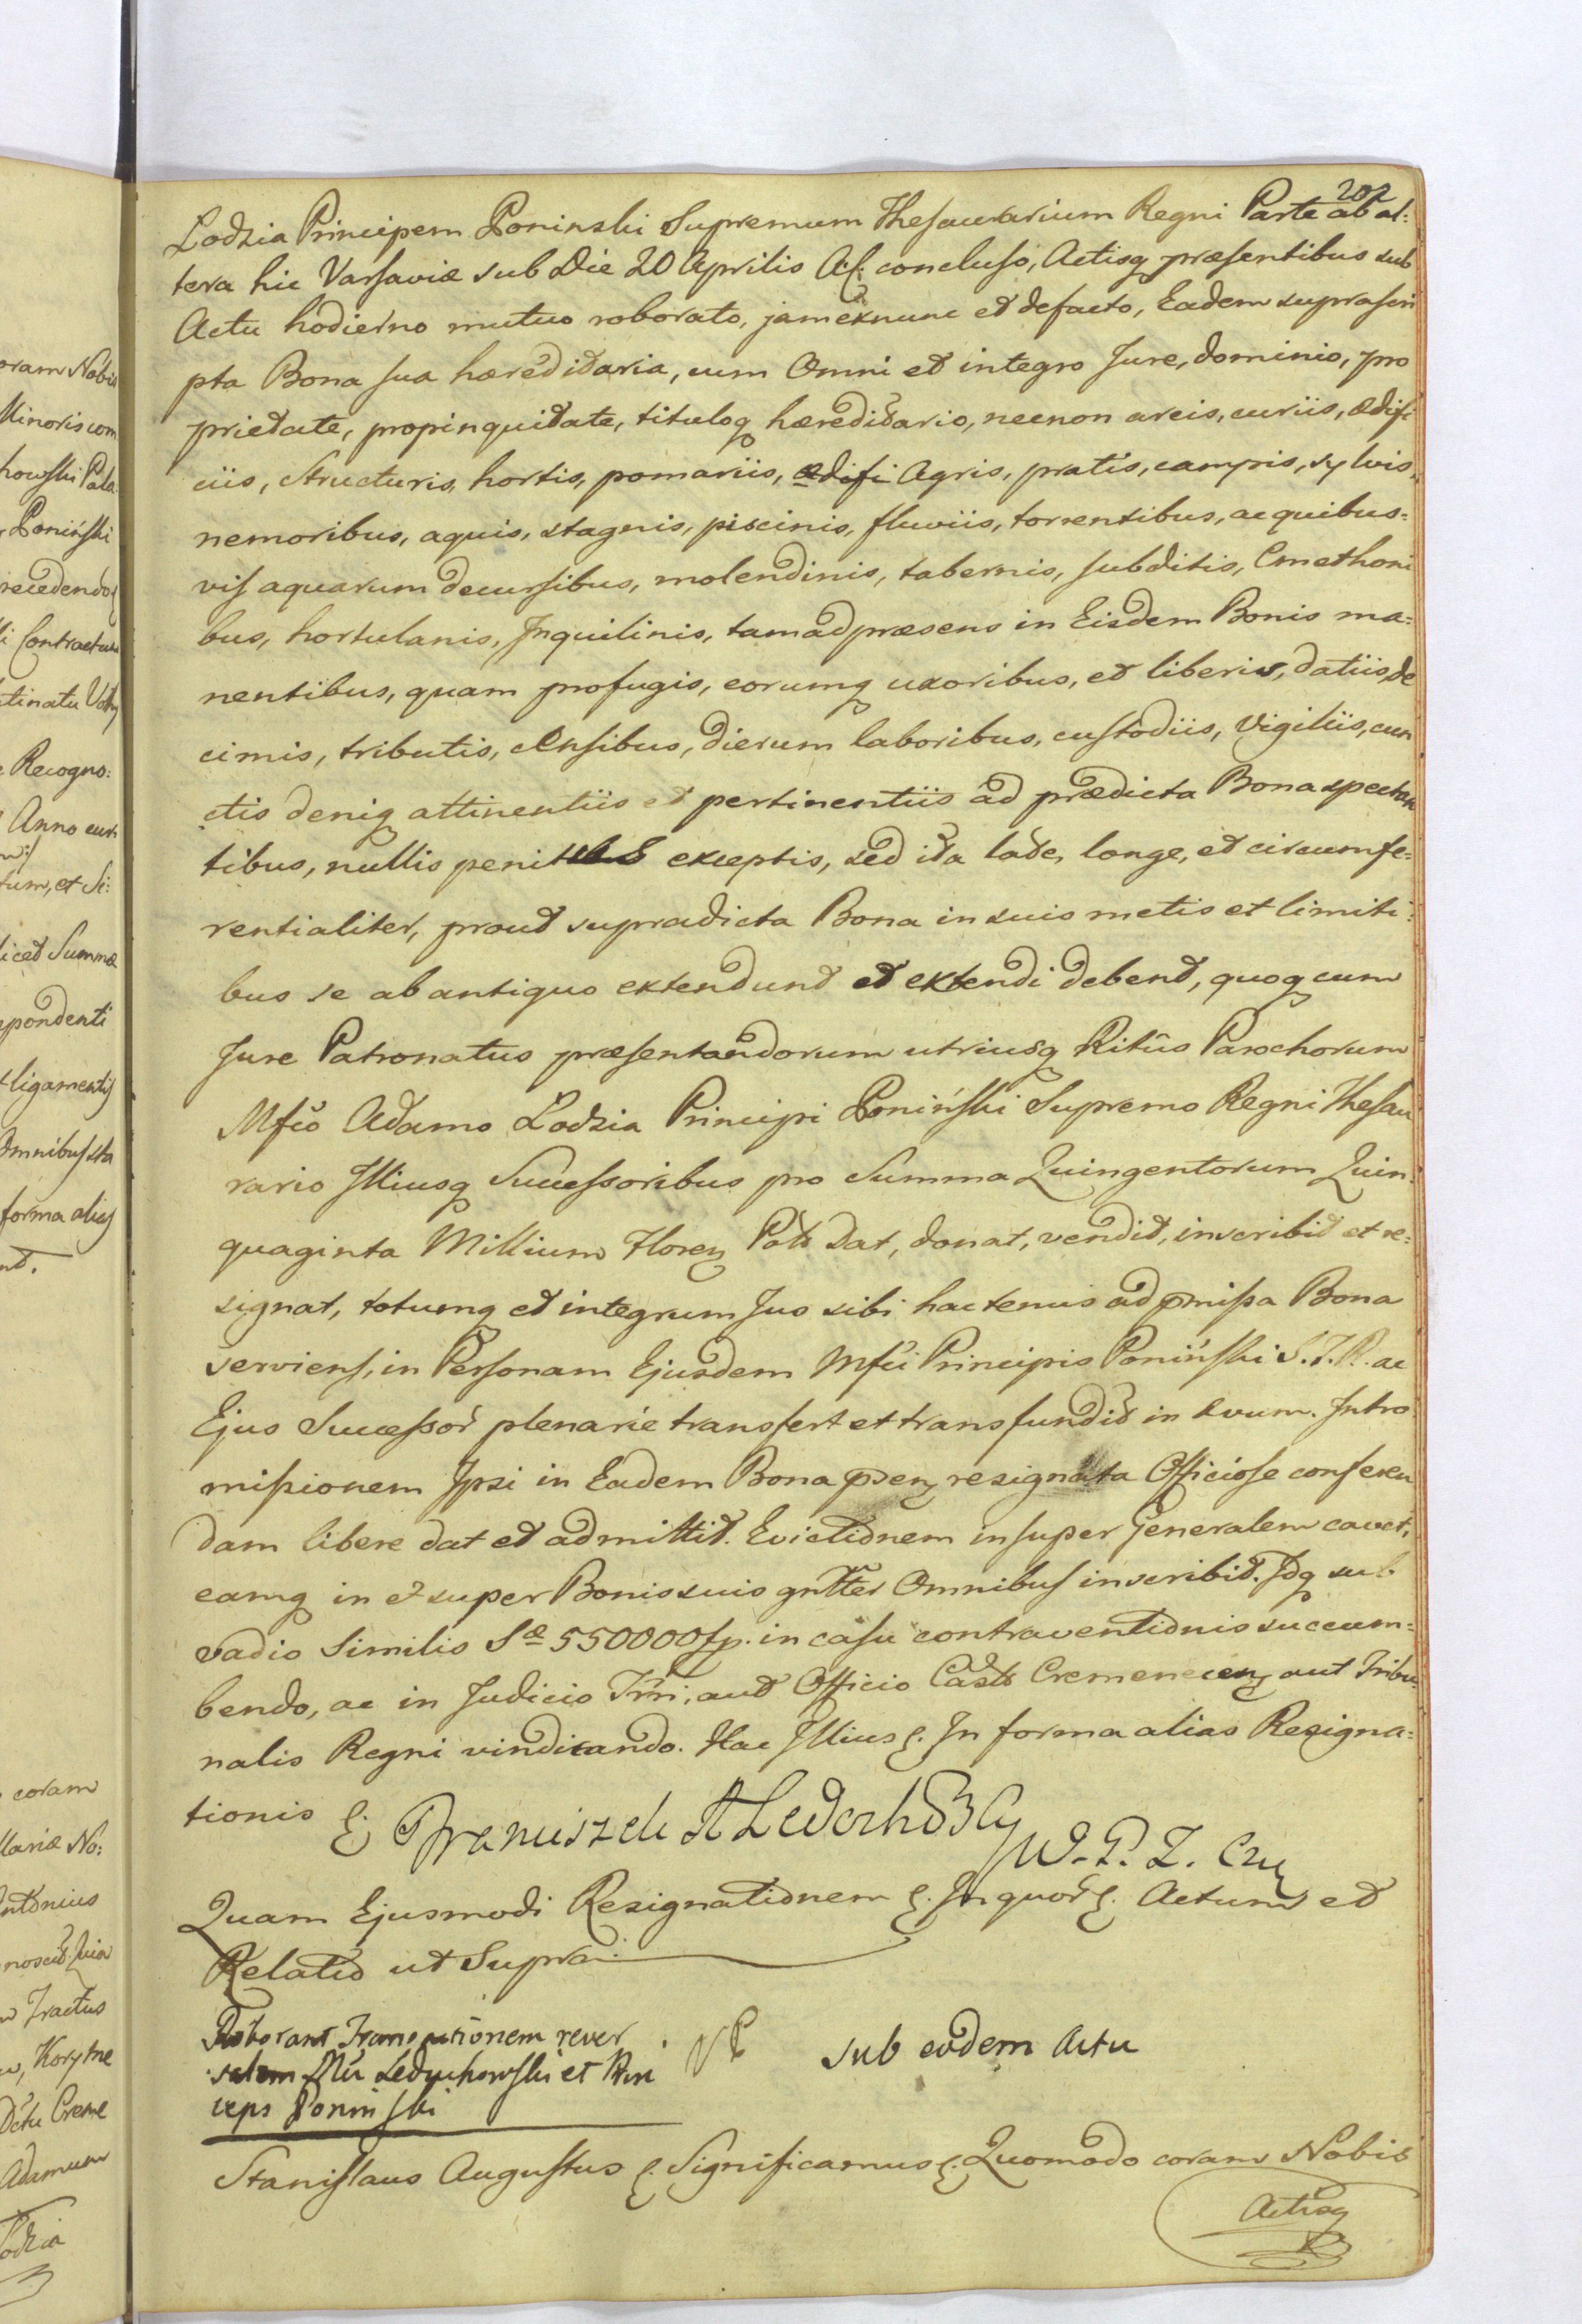 202
Lodzia Principem Poninski Supremum Thesaurarium Regni Parte ab al:
tera hic Varsaviæ sub Die 20 Aprilis A. c. concluso, Actisq præsentibus sub
Actu hodierno mutuo roborato, jam exnunc et defacto, Eadem suprascri
pta Bona sua hæreditaria, cum Omni et integro Jure, dominio, pro
prietate, propinquitate, tituloq hæreditario, necnon areis, curiis, ædifi
ciis, Structuris, hortis, pomariis, ædifi Agris, pratis, campis, sylvis,
nemoribus, aquis, stagnis, piscinis, fluviis, torrentibus, ac quibus=
vis aquarum decursibus, molendinis, tabernis, subditis, Cmethoni
bus, hortulanis, Inquilinis, tam ad præsens in Eisdem Bonis ma=
nentibus, quam profugis, eorumq uxoribus, et liberis, datiis, de
cimis, tributis, censibus, dierum laboribus, custodiis, vigiliis, cun
ctis deniq attinentiis et pertinentiis ad prædicta Bona spectan
tibus, nullis penitus exceptis, sed ita late, longe, et circumfe=
rentialiter, prout supradicta Bona in suis metis et limiti=
bus se ab antiquo extendunt et extendi debent, quoq cum
Jure Patronatus præsentandorum utriusq Ritus Parochorum
Mfco Adamo Lodzia Principi Poniński Supremo Regni Thesau
rario Illiusq Successoribus pro Summa Quingentorum Quin=
quaginta Millium Floren Pols dat, donat, vendit, inscribit et re=
signat, totumq et integrum Jus sibi hactenus ad pmissa Bona
serviens, in Personam Ejusdem Mfci Principis Poniński S.T.R. ac
Ejus Successor plenarie transfert et transfundit in ævum. Intro
missionem Ipsi in Eadem Bona psen resignata Officiose conferen
dam libere dat et admittit. Evictionem insuper Generalem cavet,
eamq in et super Bonis suis gnlter Omnibus inscribit. Idq sub
vadio Similis Sæ 550000 fp. in casu contraventionis succum=
bendo, ac in Judicio Trri, aut Officio Castr Cremenecen aut Tribu
nalis Regni vindicando. Hac Illius &. In forma alias Resigna=
tionis &. Franciszek A Ledochoski
W. P. Z. Czer
Quam Ejusmodi Resignationem &. In quor &. Actum et
Relatio ut Supra.
Roborant Transactionem rever
salem Mci Leduchowski et Prin
ceps Poninski
sub eodem Actu
Stanislaus Augustus &. Significamus &. Quomodo coram Nobis
Actisq